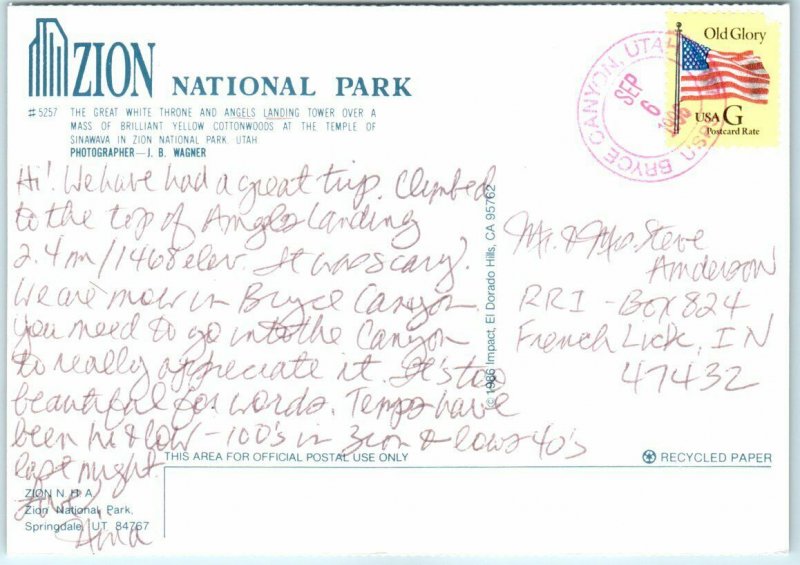 ZION NATIONAL PARK
#5257 THE GREAT WHITE THRONE AND ANGELS LANDING TOWER OVER A
MASS OF BRILLIANT YELLOW COTTONWOODS AT THE TEMPLE OF
SINAWAVA IN ZION NATIONAL PARK, UTAH.
PHOTOGRAPHER—J. B. WAGNER
Hi! We have had a great trip. Climbed
to the top of Angels Landing
2.4 m/1468 elev. It was scary!
We are now in Bryce Canyon.
You need to go into the Canyon
to really appreciate it. It's too
beautiful for words. Temps have
been hi & low - 100's in Zion & lows 40's
last night.
Love,
ZION N. H. A.
Zion National Park,
Springdale, UT 84767
©1986 Impact, El Dorado Hills, CA 95762
BRYCE CANYON, UTAH
SEP
6
Old Glory
USA G
Postcard Rate
Mr. & Mrs. Steve
Anderson
RR1 - Box 824
French Lick, IN
47432
THIS AREA FOR OFFICIAL POSTAL USE ONLY
RECYCLED PAPER